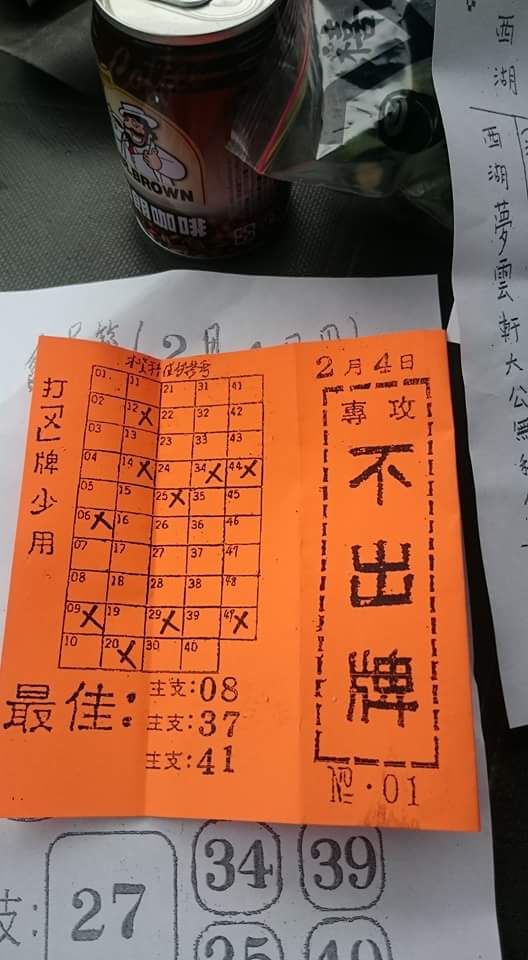 BROWN
咖啡
西湖
西湖夢雲軒大公
2月4日
專攻
不出牌
№·01
打「X」牌少用
01 11 21 31 41
02 12X 22 32 42
03 13 23 33 43
04 14X 24 34X 44X
05 15 25X 35 45
06X 16 26 36 46
07 17 27 37 47
08 18 28 38 48
09X 19 29X 39 49X
10 20X 30 40
最佳:
主支:08
主支:37
主支:41
支:
27
34 39